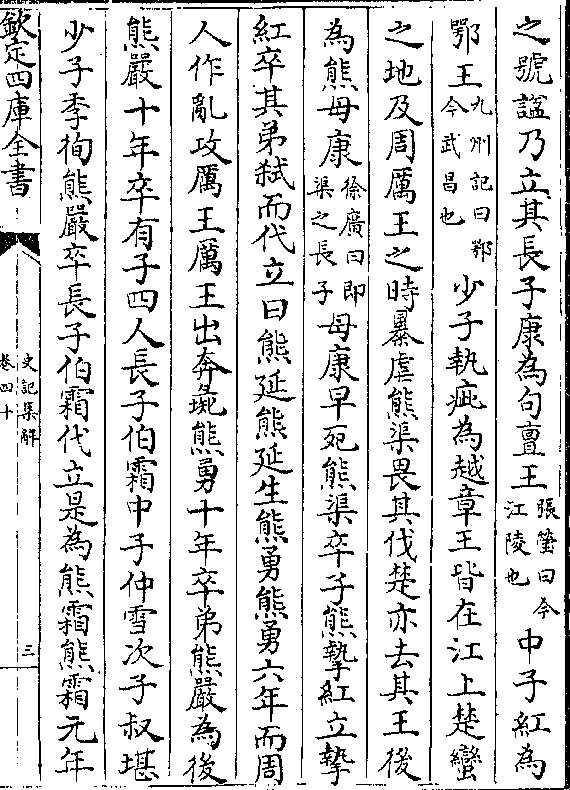 之號諡乃立其長子康為句亶王張瑩曰今江陵也中子紅為
鄂王九州記曰鄂今武昌也少子執疵為越章王皆在江上楚蠻
之地及周厲王之時暴虐熊渠畏其伐楚亦去其王後
為熊毋康徐廣曰即渠之長子毋康早死熊渠卒子熊摯紅立摯
紅卒其弟弒而代立曰熊延熊延生熊勇熊勇六年而周
人作亂攻厲王厲王出奔彘熊勇十年卒弟熊嚴為後
熊嚴十年卒有子四人長子伯霜中子仲雪次子叔堪
少子季徇熊嚴卒長子伯霜代立是為熊霜熊霜元年
欽定四庫全書
史記集解
卷四十
三